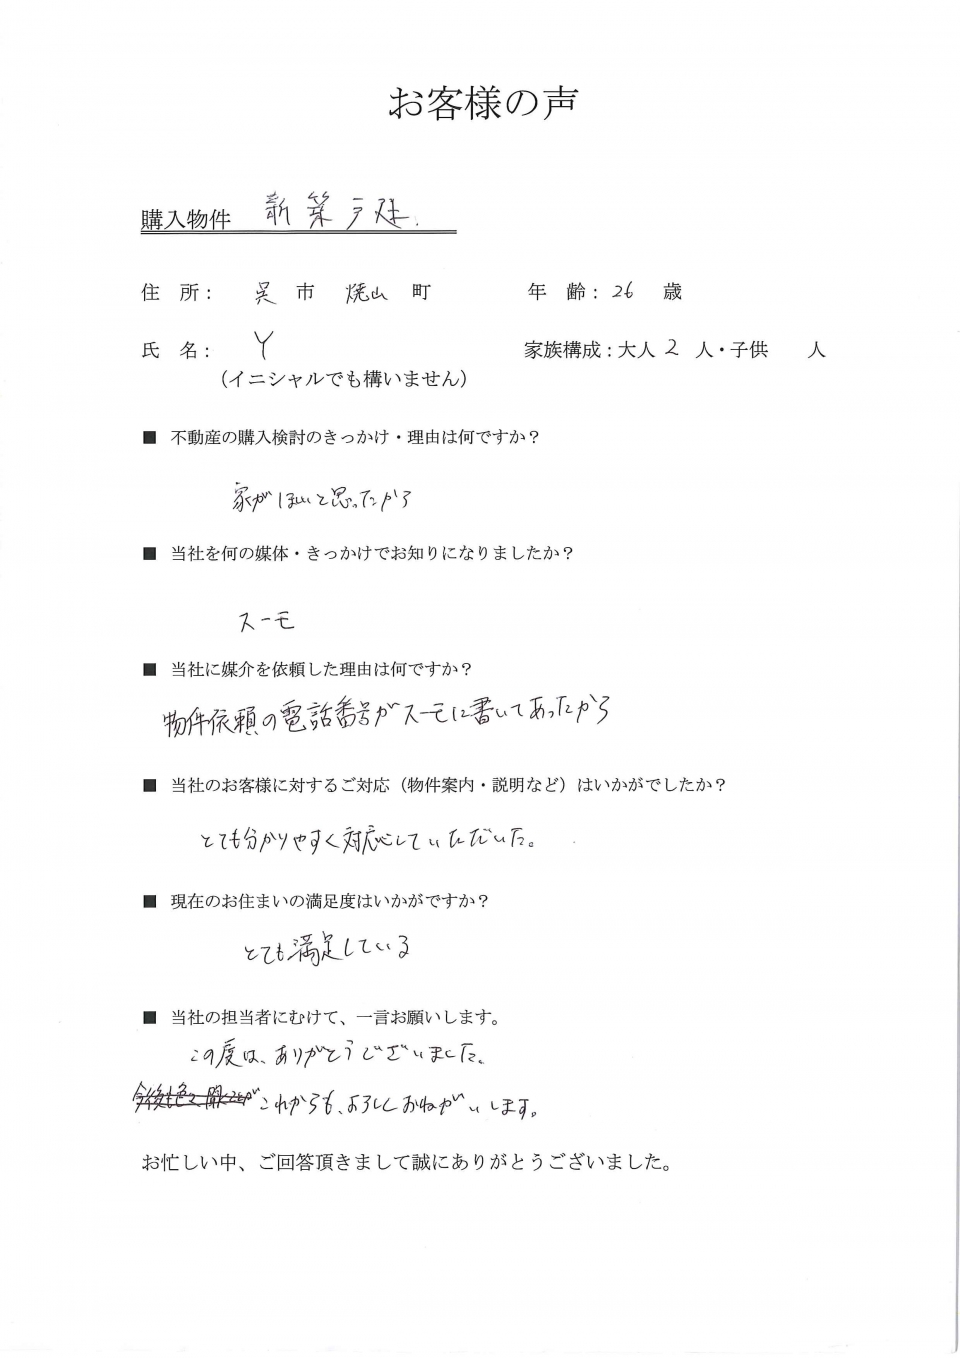 お客様の声
購入物件 新築戸建.
住 所: 呉 市 焼山 町 年 齢: 26 歳
氏 名: Y 家族構成:大人 2 人・子供 人
(イニシャルでも構いません)
■ 不動産の購入検討のきっかけ・理由は何ですか?
家がほしいと思ったから
■ 当社を何の媒体・きっかけでお知りになりましたか?
スーモ
■ 当社に媒介を依頼した理由は何ですか?
物件依頼の電話番号がスーモに書いてあったから
■ 当社のお客様に対するご対応(物件案内・説明など)はいかがでしたか?
とても分かりやすく対応していただいた。
■ 現在のお住まいの満足度はいかがですか?
とても満足している
■ 当社の担当者にむけて、一言お願いします。
この度は、ありがとうございました。
これからも、よろしくおねがいします。
お忙しい中、ご回答頂きまして誠にありがとうございました。